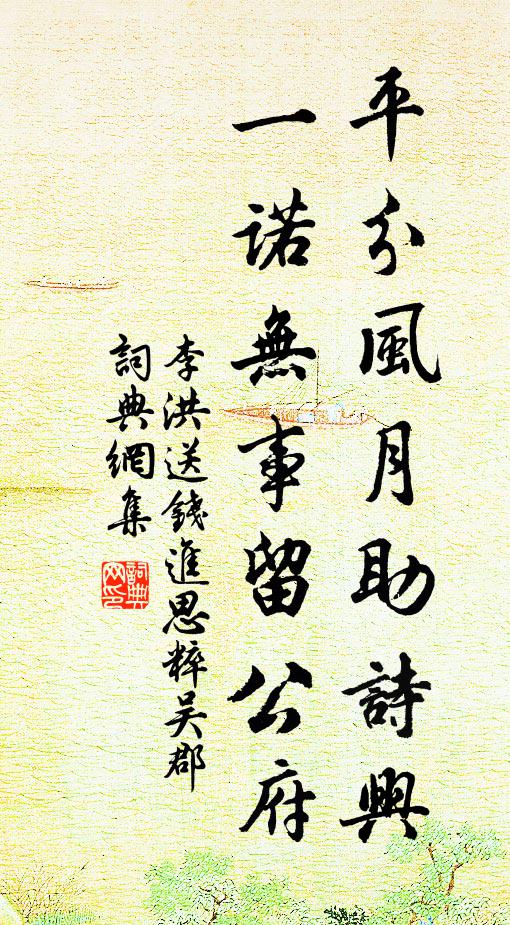 平分風月助詩興
一諾無事留公府
李洪送錢進思粹吴郡
詞典網集
詞典
网印